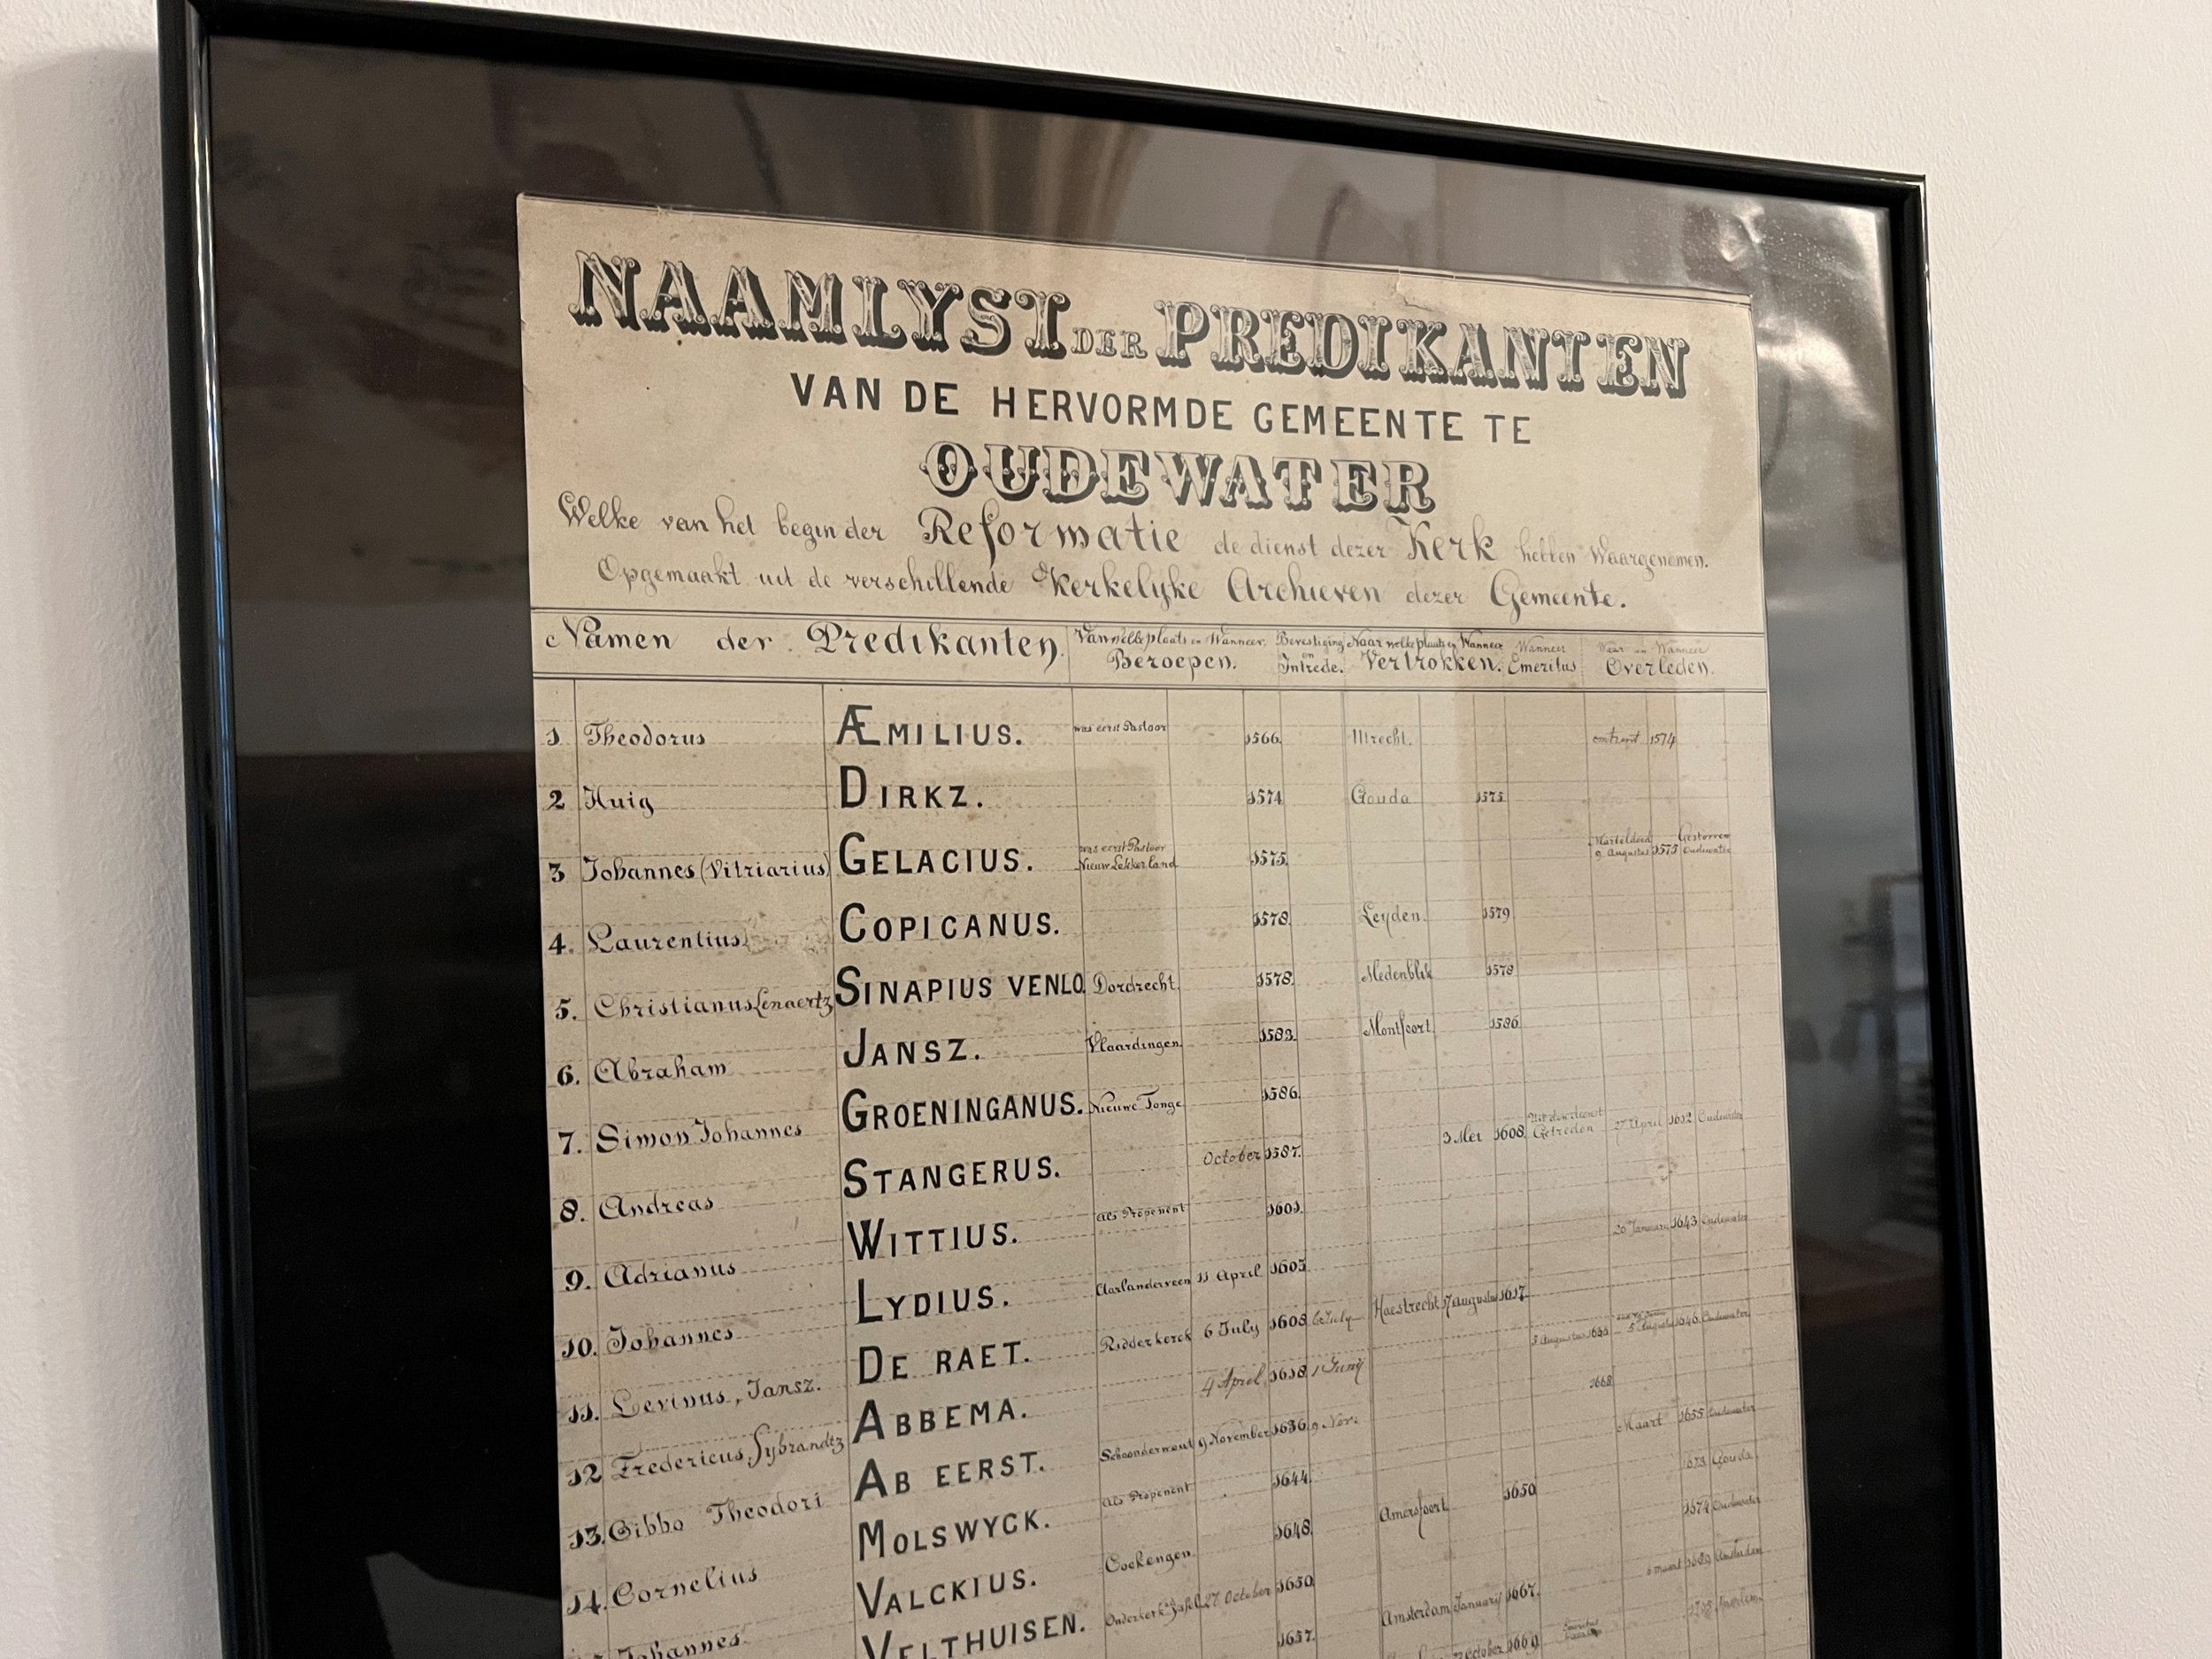 NAAMLYST DER PREDIKANTEN
VAN DE HERVORMDE GEMEENTE TE
OUDEWATER
Welke van het begin der Reformatie de dienst dezer Kerk hebben Waargenomen.
Opgemaakt uit de verschillende Kerkelyke Archieven dezer Gemeente.
Namen der Predikanten. Van welke plaats en Wanneer Beroepen. Bevestiging en Intrede. Naar welke plaats en Wanneer Vertrokken. Wanneer Emeritus Waar en Wanneer Overleden.
1 Theodorus ÆMILIUS. was eerst Pastoor 1566 Utrecht. omtrent 1574
2 Huig DIRKZ. 1574 Gouda 1575
3 Johannes (Vitriarius) GELACIUS. was eerst Pastoor Nieuw Lekkerland 1575 Marteldood 9 Augustus 1575 Gestorven Oudewater
4. Laurentius COPICANUS. 1578. Leyden. 1579
5. Christianus Lenaertz SINAPIUS VENLO. Dordrecht. 1578. Medenblik 1579
6. Abraham JANSZ. Vlaardingen. 1583. Montfoort 1586
7. Simon Johannes GROENINGANUS. Nieuwe Tonge 1586.
8. Andreas STANGERUS. October 1587. 3 Mei 1608 Uit den dienst Getreden 27 April 1612 Oudewater
9. Adrianus WITTIUS. als Proponent 1601.
10. Johannes LYDIUS. Aarlanderveen 11 April 1605 20 Januari 1643 Oudewater
11. Levinus, Jansz. DE RAET. Ridderkerck 6 July 1608 Haestrecht 17 Augustus 1617
12 Fredericus Sybrandtz ABBEMA. 4 April 1618 1 Junij 5 Augustus 1646 Oudewater
13. Gibbo Theodori AB EERST. Schoonderwout 9 November 1636 9 Nov: 1668
14. Cornelius MOLSWYCK. als Proponent 1644 Maart 1655 Oudewater
Johannes VALCKIUS. Cockengen 1648 Amersfoort 1650
VELTHUISEN. 27 October 1650 1674 Oudewater
1657. Amsterdam Januarij 1667.
October 1669